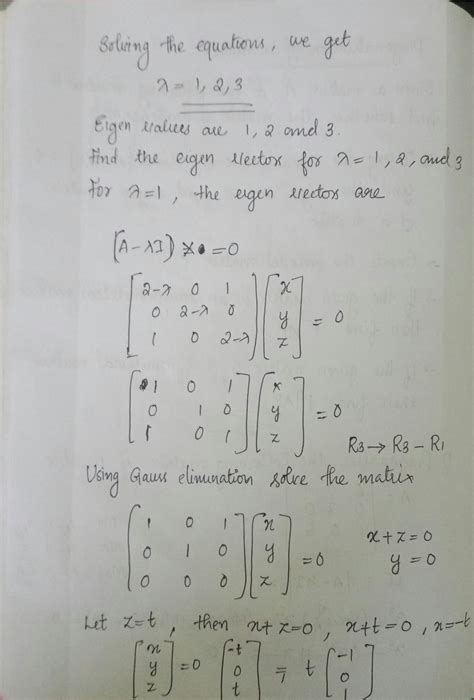 Solving the equations, we get
λ = 1, 2, 3
Eigen values are 1, 2 and 3.
Find the eigen vector for λ = 1, 2, and 3
For λ=1, the eigen vectors are
[A-λI) X = 0
[2-λ 0 1] [x]
[0 2-λ 0] [y] = 0
[1 0 2-λ] [z]
[1 0 1] [x]
[0 1 0] [y] = 0
[1 0 1] [z]
R3 → R3 - R1
Using Gaus elimination solve the matrix
[1 0 1] [x] x+z=0
[0 1 0] [y] = 0 y = 0
[0 0 0] [z]
Let z=t, then x+z=0, x+t=0, x=-t
[x] [-t] [-1]
[y] =0 [0] = t [0]
[z] [t]